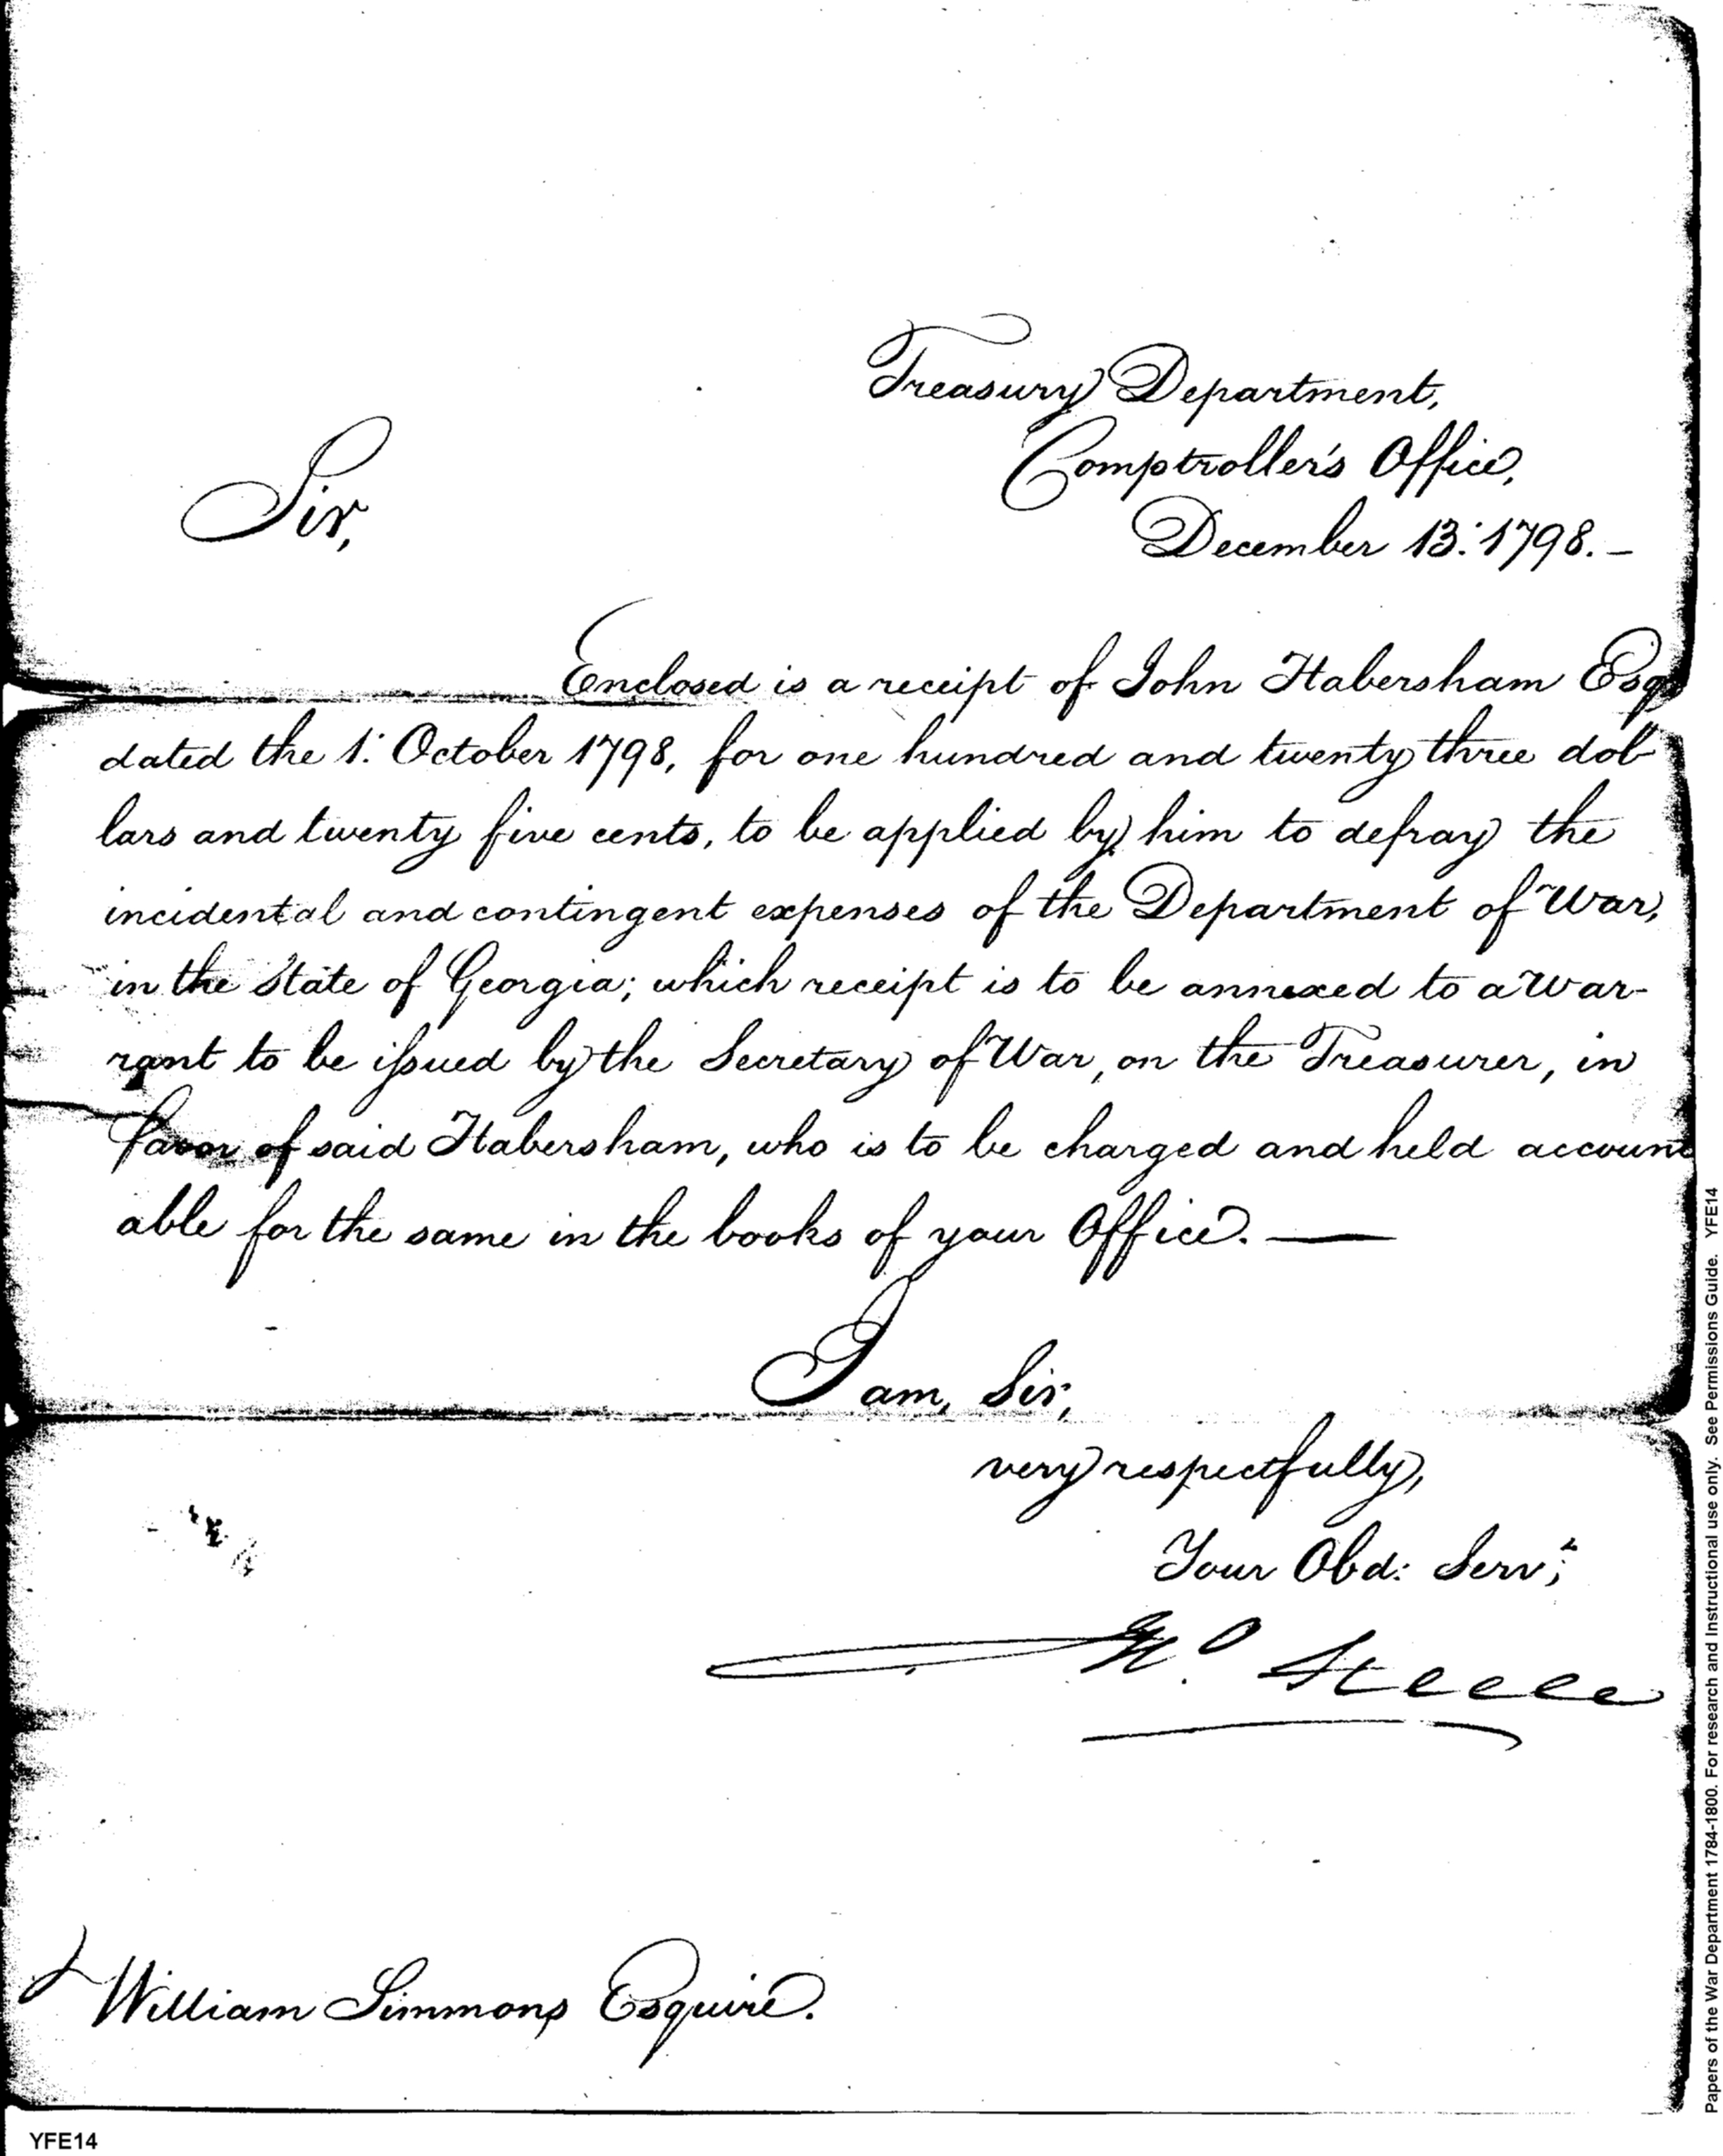 Treasury Department,
Comptroller's Office,
December 13: 1798. –
Sir,
Enclosed is a receipt of John Habersham Esqr
dated the 1: October 1798, for one hundred and twenty three dol-
lars and twenty five cents, to be applied by him to defray the
incidental and contingent expenses of the Department of War,
in the State of Georgia; which receipt is to be annexed to a War-
rant to be issued by the Secretary of War, on the Treasurer, in
favor of said Habersham, who is to be charged and held account
able for the same in the books of your Office. —
I am, Sir,
very respectfully,
Your Obd: Servt;
Jno. Steele
William Simmons Esquire.
YFE14
Papers of the War Department 1784-1800. For research and Instructional use only. See Permissions Guide. YFE14